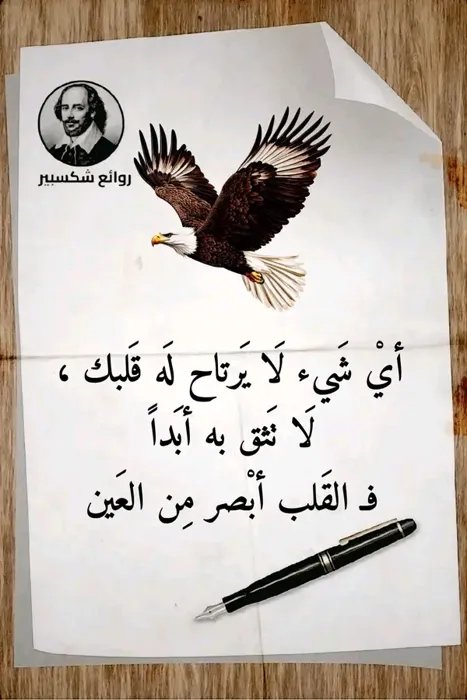 روائع شكسبير
أيْ شَيء لَا يَرتاح لَه قَلبك ،
لَا تَثق به أبَداً
فـ القَلب أبْصر مِن العَين